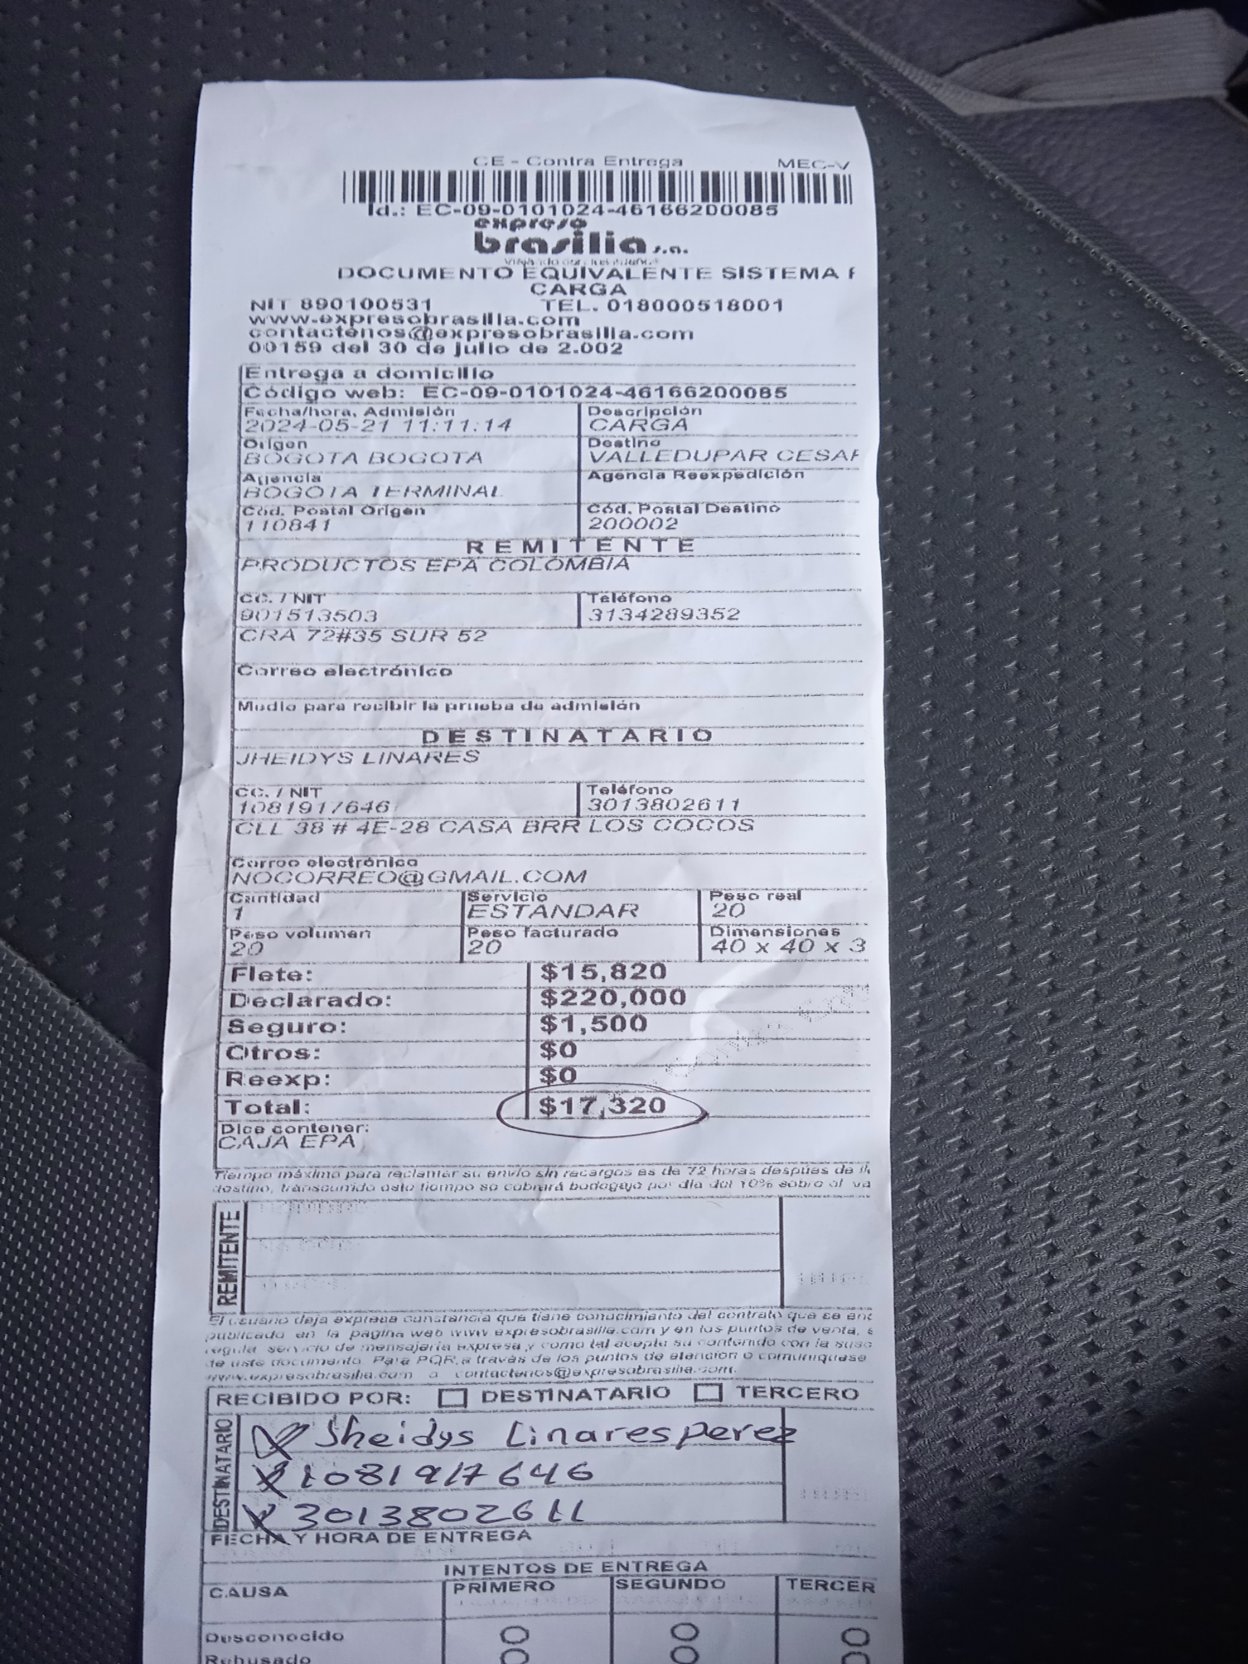 CE - Contra Entrega MEC-V
Id.: EC-09-0101024-46166200085
expreso
brasilia s.a.
DOCUMENTO EQUIVALENTE SISTEMA
CARGA
NIT 890100531 TEL. 018000518001
www.expresobrasilia.com
contactenos@expresobrasilia.com
00159 del 30 de julio de 2.002
Entrega a domicilio
Código web: EC-09-0101024-46166200085
Fecha/hora, Admisión Descripción
2024-05-21 11:11:14 CARGA
Origen Destino
BOGOTA BOGOTA VALLEDUPAR CESAR
Agencia Agencia Reexpedición
BOGOTA TERMINAL
Cód. Postal Origen Cód. Postal Destino
110841 200002
REMITENTE
PRODUCTOS EPA COLOMBIA
CC. / NIT Teléfono
901513503 3134289352
CRA 72#35 SUR 52
Correo electrónico
Medio para recibir la prueba de admisión
DESTINATARIO
JHEIDYS LINARES
CC. / NIT Teléfono
1081917646 3013802611
CLL 38 # 4E-28 CASA BRR LOS COCOS
Correo electrónico
NOCORREO@GMAIL.COM
Cantidad Servicio Peso real
1 ESTANDAR 20
Peso volumen Peso facturado Dimensiones
20 20 40 x 40 x 3
Flete: $15,820
Declarado: $220,000
Seguro: $1,500
Otros: $0
Reexp: $0
Total: $17,320
Dice contener:
CAJA EPA
Tiempo máximo para reclamar su envío sin recargos es de 72 horas después de
destino, transcurrido este tiempo se cobrará bodegaje por día del 10% sobre el va
REMITENTE
El usuario deja expresa constancia que tiene conocimiento del contrato que se
publicado en la pagina web www expresobrasilia.com y en los puntos de venta,
regula servicio de mensajería expresa y como tal acepta su contenido con la
de este documento. Para PQR a través de los puntos de atención o comuniquese
www.expresobrasilia.com o contactenos@expresobrasilia.com.
RECIBIDO POR: DESTINATARIO TERCERO
DESTINATARIO
Jheidys Linares perez
1081917646
3013802611
FECHA Y HORA DE ENTREGA
INTENTOS DE ENTREGA
CAUSA PRIMERO SEGUNDO TERCER
Desconocido
Rehusado